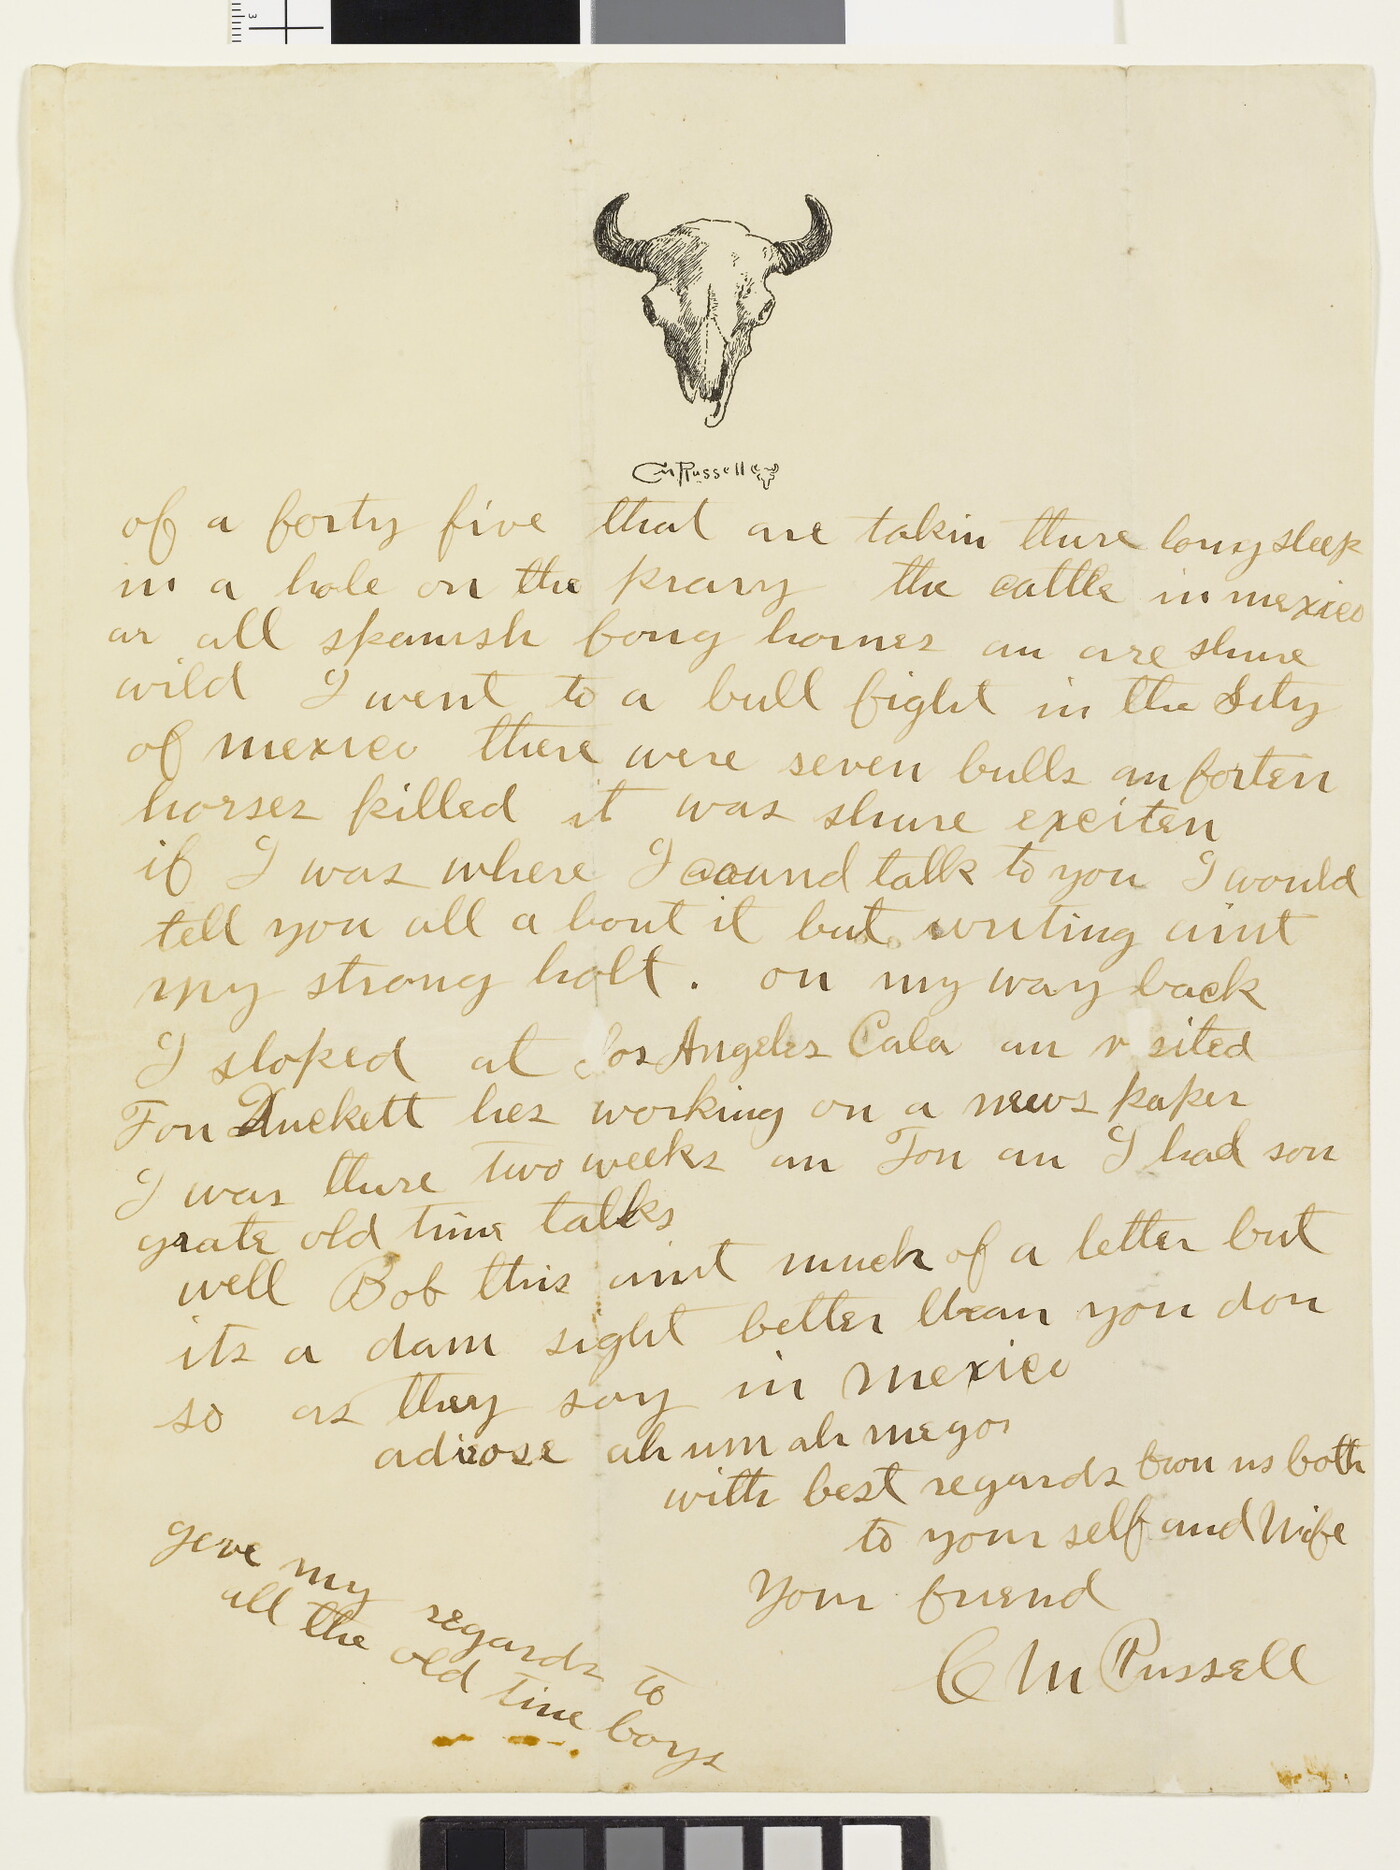 CM Russell
of a forty five that are takin there long sleep
in a hole on the prary the cattle in mexico
ar all spanish long hornes an are shure
wild I went to a bull fight in the Sity
of mexico there were seven bulls an forten
horses killed it was shure exciten
if I was where I could talk to you I would
tell you all a bout it but writing aint
my strong holt. on my way back
I stoped at Los Angeles Cala an visited
Fon Duckett hes working on a news paper
I was there two weeks an Fon an I had son
grate old time talks
well Bob this aint much of a letter but
its a dam sight better than you don
so as they say in mexico
adiose ah um ah megos
with best regards from us both
to your self and Wife
Your friend
C M Russell
geve my regards to
all the old time boys